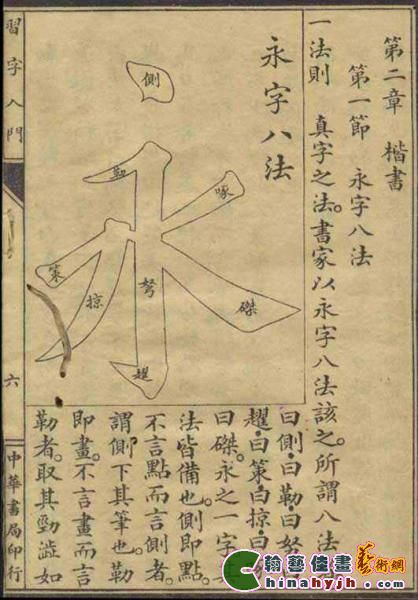 第二章 楷書
第一節 永字八法
一法則 真字之法。書家以永字八法該之。所謂八法
永字八法
側
勒
啄
策
掠
弩
磔
趯
曰側。曰勒。曰努。
趯。曰策。曰掠。曰
曰磔。永之一字
法皆備也。側即點。
不言點而言側者。
謂側下其筆也。勒
即畫。不言畫而言
勒者。取其勁澁如
習字入門
六
中華書局印行
翰藝佳畫 藝術網
hinahyjh.com